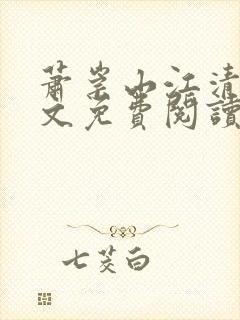 蕭崇山江清
文免費閱讀
七茭白